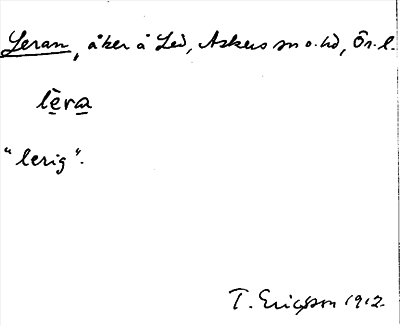 Leran, åker å Led, Askers sn o. hd, Ör. l.
lèra
"lerig".
T. Ericsson 1912.